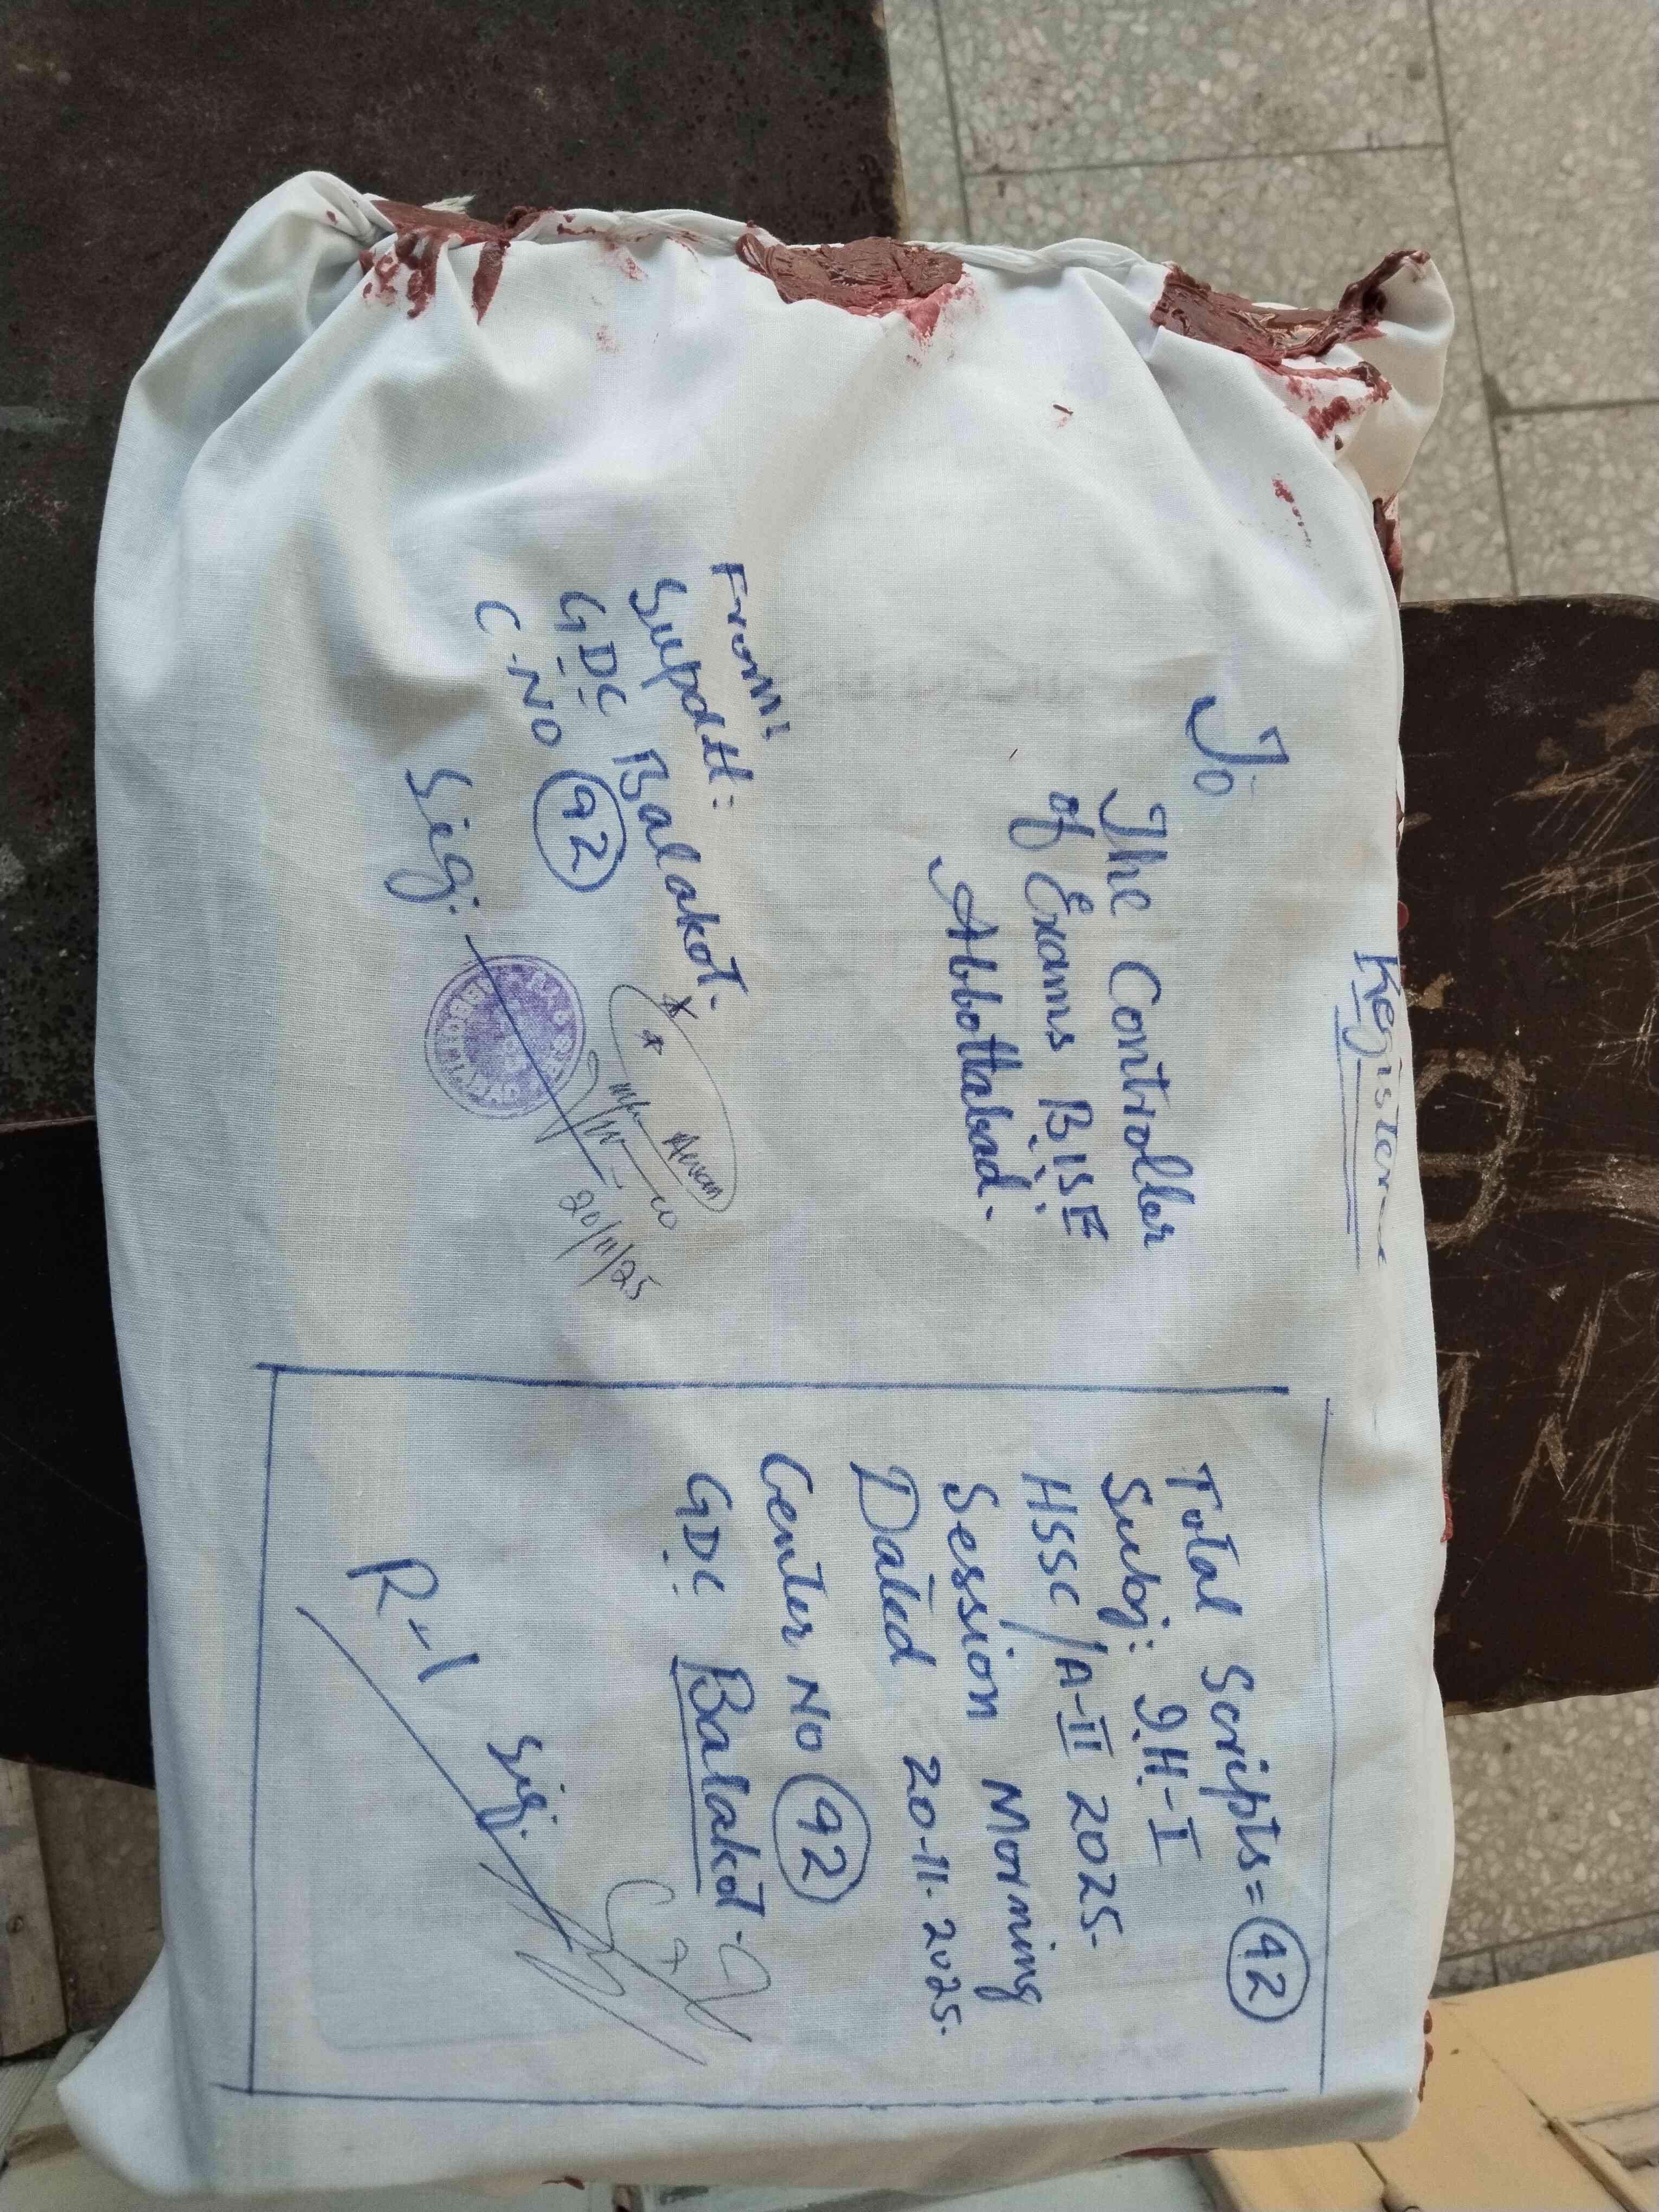 To
The Controller
of Exams B.I.S.E
Abbottabad.
From:
Supdtt:
G.D.C Balakot.
C.NO 92
Sig:
Awan
20/11/25
Total Scripts = 42
Subj: I.H-I
HSSC/A-II 2025.
Session Morning
Dated 20-11-2025.
Center No 92
G.D.C Balakot.
R-1
Sig.